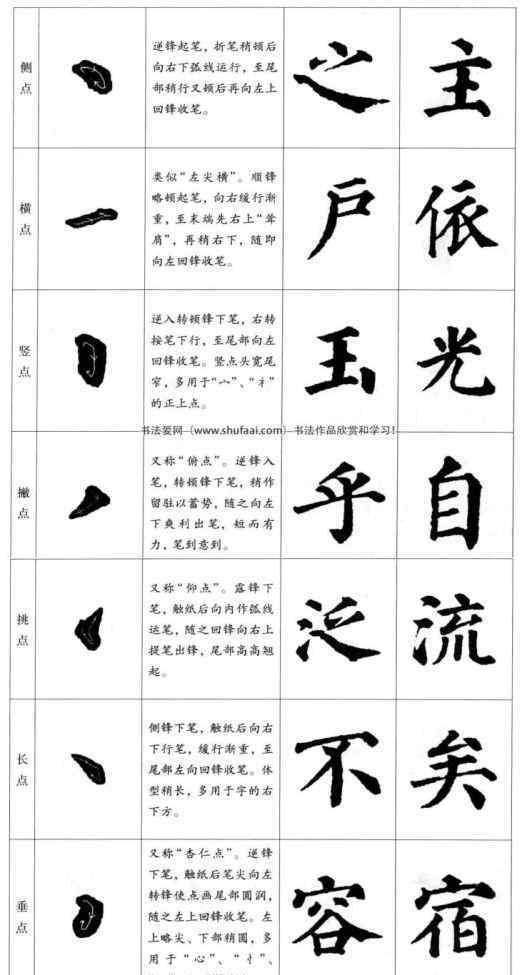 侧点
逆锋起笔，折笔稍顿后
向右下弧线运行，至尾
部稍行又顿后再向左上
回锋收笔。
之 主
横点
类似“左尖横”。顺锋
略顿起笔，向右缓行渐
重，至末端先右上“耸
肩”，再稍右下，随即
向左回锋收笔。
户 依
竖点
逆入转顿锋下笔，右转
按笔下行，至尾部向左
回锋收笔。竖点头宽尾
窄，多用于“宀”、“礻”
的正上点。
玉 光
书法爱网（www.shufaai.com）书法作品欣赏和学习！
撇点
又称“俯点”。逆锋入
笔，转顿锋下笔，稍作
留驻以蓄势，随之向左
下爽利出笔，短而有
力，笔到意到。
乎 自
挑点
又称“仰点”。露锋下
笔，触纸后向内作弧线
运笔，随之回锋向右上
提笔出锋，尾部高高翘
起。
泛 流
长点
侧锋下笔，触纸后向右
下行笔，缓行渐重，至
尾部左向回锋收笔。体
型稍长，多用于字的右
下方。
不 矣
垂点
又称“杏仁点”。逆锋
下笔，触纸后笔尖向左
转锋使点画尾部圆润，
随之左上回锋收笔。左
上略尖、下部稍圆，多
用于“心”、“忄”、
容 宿